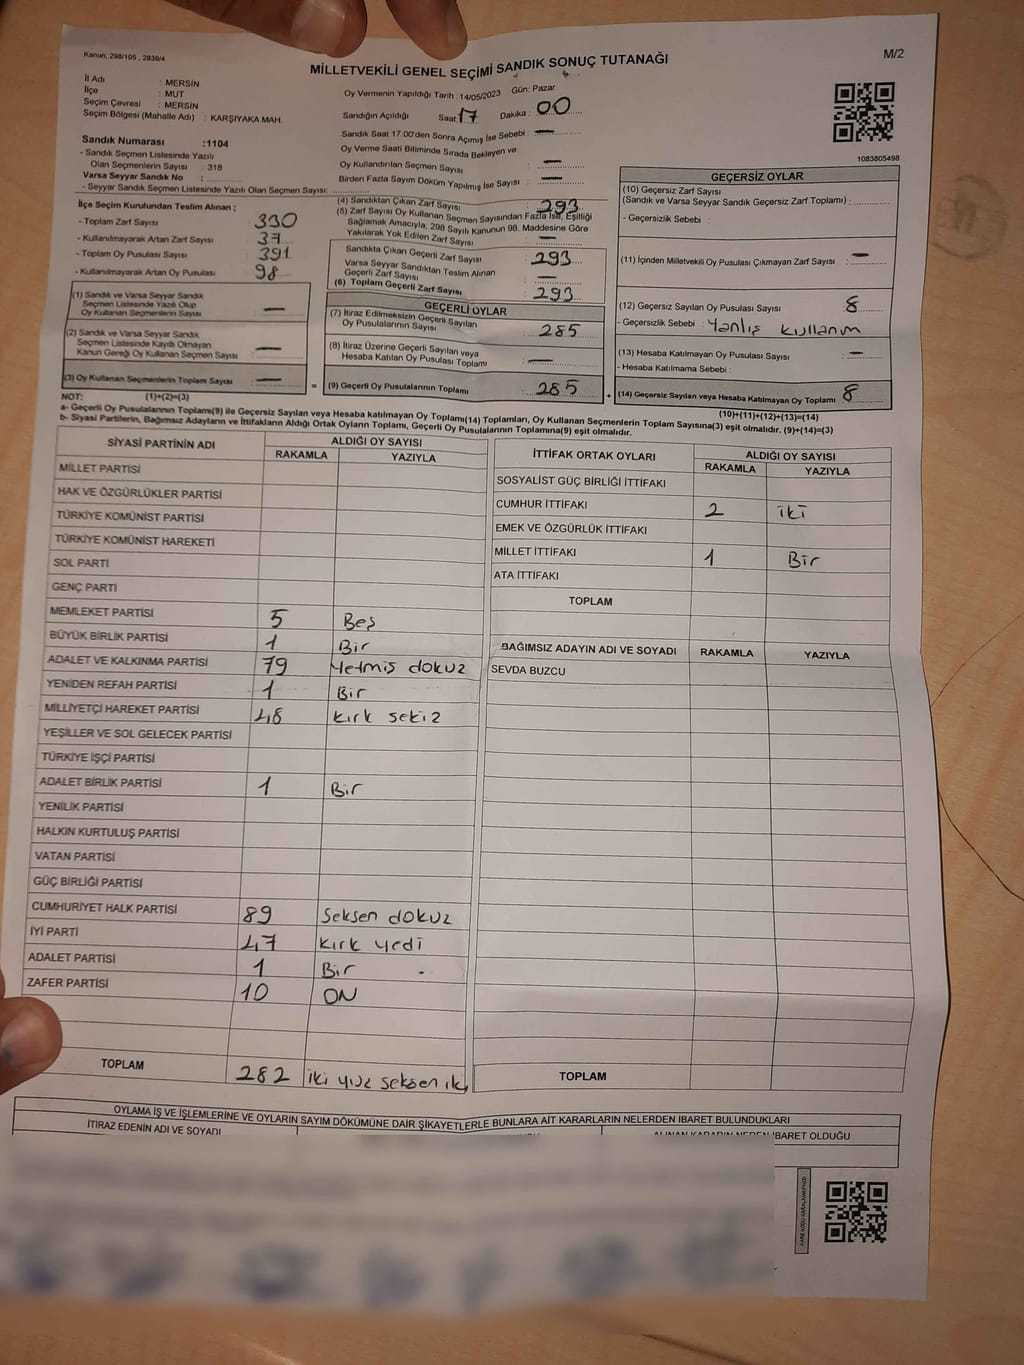 Kanun; 298/105 , 2839/4
M/2
MİLLETVEKİLİ GENEL SEÇİMİ SANDIK SONUÇ TUTANAĞI
İl Adı : MERSİN
İlçe : MUT
Seçim Çevresi : MERSİN
Seçim Bölgesi (Mahalle Adı) : KARŞIYAKA MAH.
Sandık Numarası :1104
- Sandık Seçmen Listesinde Yazılı
Olan Seçmenlerin Sayısı : 318
Varsa Seyyar Sandık No :
- Seyyar Sandık Seçmen Listesinde Yazılı Olan Seçmen Sayısı:
Oy Vermenin Yapıldığı Tarih : 14/05/2023 Gün: Pazar
Sandığın Açıldığı Saat: 17 Dakika : 00
Sandık Saat 17:00'den Sonra Açımış İse Sebebi : —
Oy Verme Saati Bitiminde Sırada Bekleyen ve
Oy Kullandırılan Seçmen Sayısı : —
Birden Fazla Sayım Döküm Yapılmış İse Sayısı : —
1083805498
İlçe Seçim Kurulundan Teslim Alınan ;
- Toplam Zarf Sayısı 330
- Kullanılmayarak Artan Zarf Sayısı 37
- Toplam Oy Pusulası Sayısı 391
- Kullanılmayarak Artan Oy Pusulası 98
(1) Sandık ve Varsa Seyyar Sandık
Seçmen Listesinde Yazılı Olup
Oy Kullanan Seçmenlerin Sayısı : —
(2) Sandık ve Varsa Seyyar Sandık
Seçmen Listesinde Kayıtlı Olmayan
Kanun Gereği Oy Kullanan Seçmen Sayısı : —
(3) Oy Kullanan Seçmenlerin Toplam Sayısı : —
(4) Sandıktan Çıkan Zarf Sayısı : 293
(5) Zarf Sayısı Oy Kullanan Seçmen Sayısından Fazla İse, Eşitliği
Sağlamak Amacıyla, 298 Sayılı Kanunun 98. Maddesine Göre
Yakılarak Yok Edilen Zarf Sayısı : —
Sandıkta Çıkan Geçerli Zarf Sayısı : 293
Varsa Seyyar Sandıktan Teslim Alınan
Geçerli Zarf Sayısı : —
(6) Toplam Geçerli Zarf Sayısı : 293
GEÇERLİ OYLAR
(7) İtiraz Edilmeksizin Geçerli Sayılan
Oy Pusulalarının Sayısı : 285
(8) İtiraz Üzerine Geçerli Sayılan veya
Hesaba Katılan Oy Pusulası Toplamı : —
= (9) Geçerli Oy Pusulalarının Toplamı : 285
GEÇERSİZ OYLAR
(10) Geçersiz Zarf Sayısı
(Sandık ve Varsa Seyyar Sandık Geçersiz Zarf Toplamı) :
- Geçersizlik Sebebi :
(11) İçinden Milletvekili Oy Pusulası Çıkmayan Zarf Sayısı : —
(12) Geçersiz Sayılan Oy Pusulası Sayısı : 8
- Geçersizlik Sebebi : Yanlış kullanım
(13) Hesaba Katılmayan Oy Pusulası Sayısı : —
- Hesaba Katılmama Sebebi :
+ (14) Geçersiz Sayılan veya Hesaba Katılmayan Oy Toplamı : 8
NOT: (1)+(2)=(3)
(10)+(11)+(12)+(13)=(14)
a- Geçerli Oy Pusulalarının Toplamı(9) ile Geçersiz Sayılan veya Hesaba katılmayan Oy Toplamı(14) Toplamları, Oy Kullanan Seçmenlerin Toplam Sayısına(3) eşit olmalıdır. (9)+(14)=(3)
b- Siyasi Partilerin, Bağımsız Adayların ve İttifakların Aldığı Ortak Oyların Toplamı, Geçerli Oy Pusulalarının Toplamına(9) eşit olmalıdır.
SİYASİ PARTİNİN ADI ALDIĞI OY SAYISI
RAKAMLA YAZIYLA
MİLLET PARTİSİ
HAK VE ÖZGÜRLÜKLER PARTİSİ
TÜRKİYE KOMÜNİST PARTİSİ
TÜRKİYE KOMÜNİST HAREKETİ
SOL PARTİ
GENÇ PARTİ
MEMLEKET PARTİSİ 5 Beş
BÜYÜK BİRLİK PARTİSİ 1 Bir
ADALET VE KALKINMA PARTİSİ 79 Yetmiş dokuz
YENİDEN REFAH PARTİSİ 1 Bir
MİLLİYETÇİ HAREKET PARTİSİ 48 kırk sekiz
YEŞİLLER VE SOL GELECEK PARTİSİ
TÜRKİYE İŞÇİ PARTİSİ
ADALET BİRLİK PARTİSİ 1 Bir
YENİLİK PARTİSİ
HALKIN KURTULUŞ PARTİSİ
VATAN PARTİSİ
GÜÇ BİRLİĞİ PARTİSİ
CUMHURİYET HALK PARTİSİ 89 Seksen dokuz
İYİ PARTİ 47 kırk yedi
ADALET PARTİSİ 1 Bir
ZAFER PARTİSİ 10 ON
TOPLAM 282 iki yüz seksen iki
İTTİFAK ORTAK OYLARI ALDIĞI OY SAYISI
RAKAMLA YAZIYLA
SOSYALİST GÜÇ BİRLİĞİ İTTİFAKI
CUMHUR İTTİFAKI 2 iki
EMEK VE ÖZGÜRLÜK İTTİFAKI
MİLLET İTTİFAKI 1 Bir
ATA İTTİFAKI
TOPLAM
BAĞIMSIZ ADAYIN ADI VE SOYADI RAKAMLA YAZIYLA
SEVDA BUZCU
TOPLAM
OYLAMA İŞ VE İŞLEMLERİNE VE OYLARIN SAYIM DÖKÜMÜNE DAİR ŞİKAYETLERLE BUNLARA AİT KARARLARIN NELERDEN İBARET BULUNDUKLARI
İTİRAZ EDENİN ADI VE SOYADI
ALINAN KARARIN NEDEN İBARET OLDUĞU